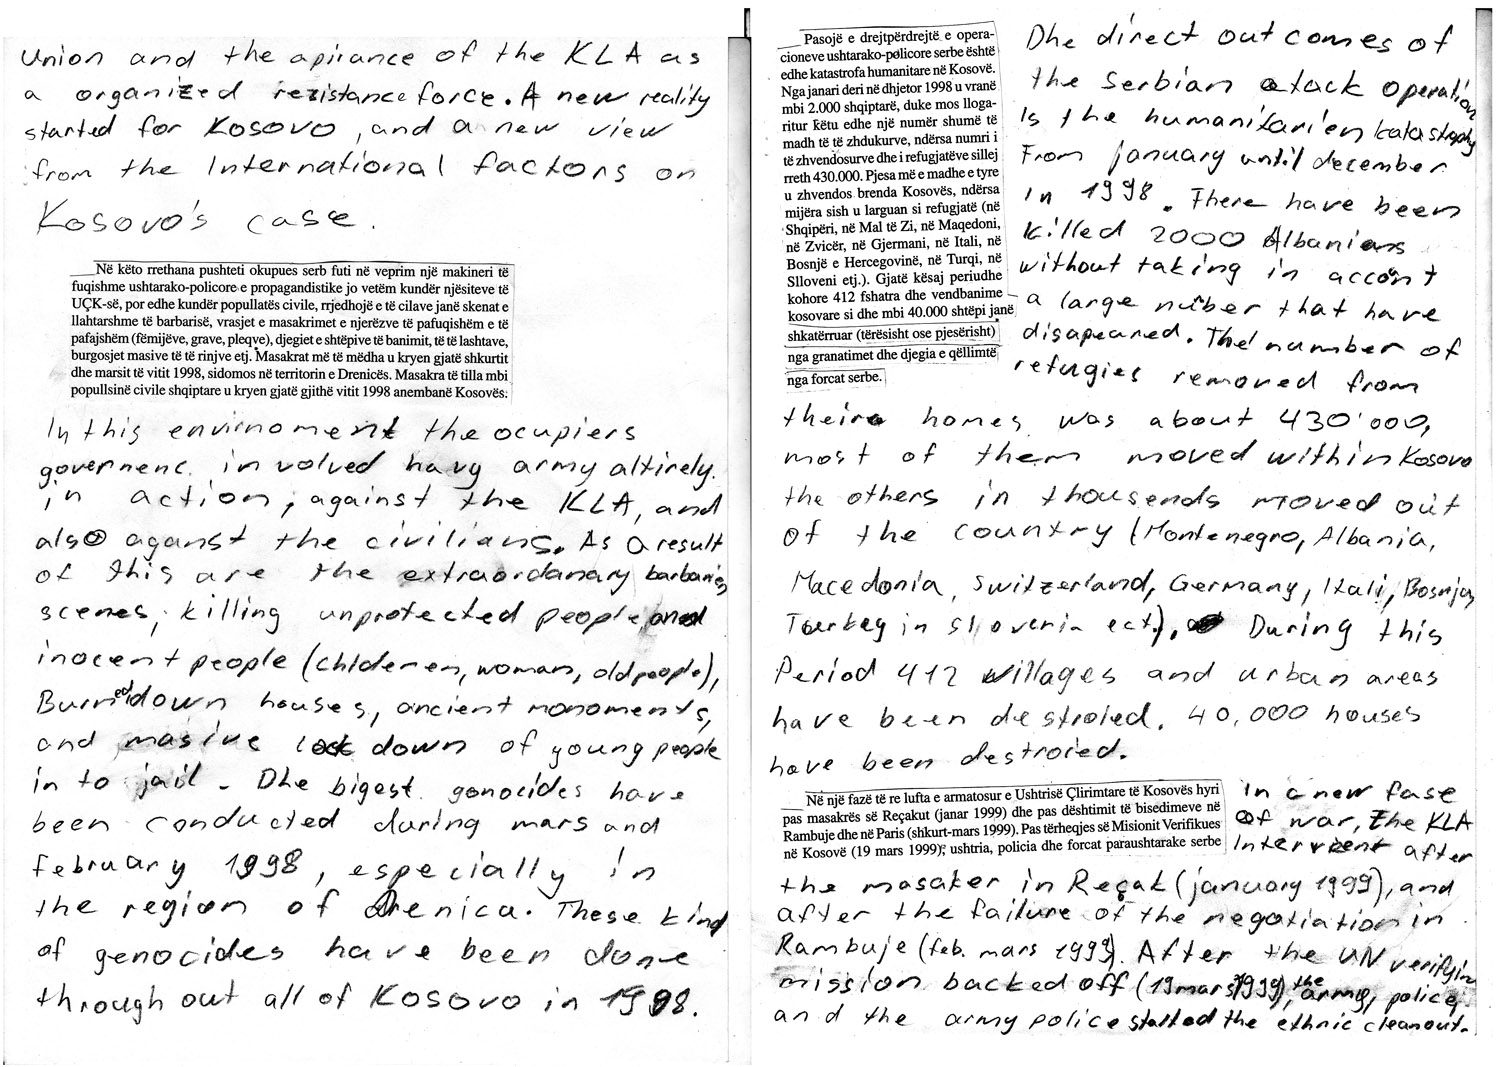 Union and the apirance of the KLA as
a organized rezistance force. A new reality
started for Kosovo, and a new view
from the International factors on
Kosovo's case.
Në këto rrethana pushteti okupues serb futi në veprim një makineri të
fuqishme ushtarako-policore e propagandistike jo vetëm kundër njësiteve të
UÇK-së, por edhe kundër popullatës civile, rrjedhojë e të cilave janë skenat e
llahtarshme të barbarisë, vrasjet e masakrimet e njerëzve të pafuqishëm e të
pafajshëm (fëmijëve, grave, pleqve), djegiet e shtëpive të banimit, të të lashtave,
burgosjet masive të të rinjve etj. Masakrat më të mëdha u kryen gjatë shkurtit
dhe marsit të vitit 1998, sidomos në territorin e Drenicës. Masakra të tilla mbi
popullsinë civile shqiptare u kryen gjatë gjithë vitit 1998 anembanë Kosovës.
In this envirnoment the ocupiers
governenc involved havy army altirely.
in action, against the KLA, and
also aganst the civilians. As a result
of this are the extraordanary barbaries
scenes, killing unprotected people and
inocent people (childeren, woman, old people),
Burned down houses, ancient monoments,
and masive lock down of young people
in to jail. Dhe bigest genocides have
been conducted during mars and
february 1998, especially in
the region of Drenica. These kind
of genocides have been done
through out all of Kosovo in 1998.
Pasojë e drejtpërdrejtë e opera-
cioneve ushtarako-policore serbe është
edhe katastrofa humanitare në Kosovë.
Nga janari deri në dhjetor 1998 u vranë
mbi 2.000 shqiptarë, duke mos lloga-
ritur këtu edhe një numër shumë të
madh të të zhdukurve, ndërsa numri i
të zhvendosurve dhe i refugjatëve sillej
rreth 430.000. Pjesa më e madhe e tyre
u zhvendos brenda Kosovës, ndërsa
mijëra sish u larguan si refugjatë (në
Shqipëri, në Mal të Zi, në Maqedoni,
në Zvicër, në Gjermani, në Itali, në
Bosnjë e Hercegovinë, në Turqi, në
Slloveni etj.). Gjatë kësaj periudhe
kohore 412 fshatra dhe vendbanime
kosovare si dhe mbi 40.000 shtëpi janë
shkatërruar (tërësisht ose pjesërisht)
nga granatimet dhe djegia e qëllimtë
nga forcat serbe.
Dhe direct outcomes of
the serbian atack operation
Is the humanitarien katastrophy
From january until december
in 1998. There have been
killed 2000 Albanians
without taking in accont
a large number that have
disapeared. The number of
refugies removed from
their homes was about 430'000,
most of them moved within Kosovo
the others in thousends moved out
of the country (Montenegro, Albania,
Macedonia, Switzerland, Germany, Itali, Bosnja,
Turkey in Slovenia ect.), During this
Period 412 villages and urban areas
have been destroied. 40,000 houses
have been destroied.
Në një fazë të re lufta e armatosur e Ushtrisë Çlirimtare të Kosovës hyri
pas masakrës së Reçakut (janar 1999) dhe pas dështimit të bisedimeve në
Rambuje dhe në Paris (shkurt-mars 1999). Pas tërheqjes së Misionit Verifikues
në Kosovë (19 mars 1999), ushtria, policia dhe forcat paraushtarake serbe
In a new fase
of war, the KLA
Intervent after
the masaker in Reçak (january 1999), and
after the failure of the negotiation in
Rambuje (feb. mars 1999). After the UN verifyin
mission backed off (19 mars 1999), the army, police,
and the army police started the ethnic cleanout.